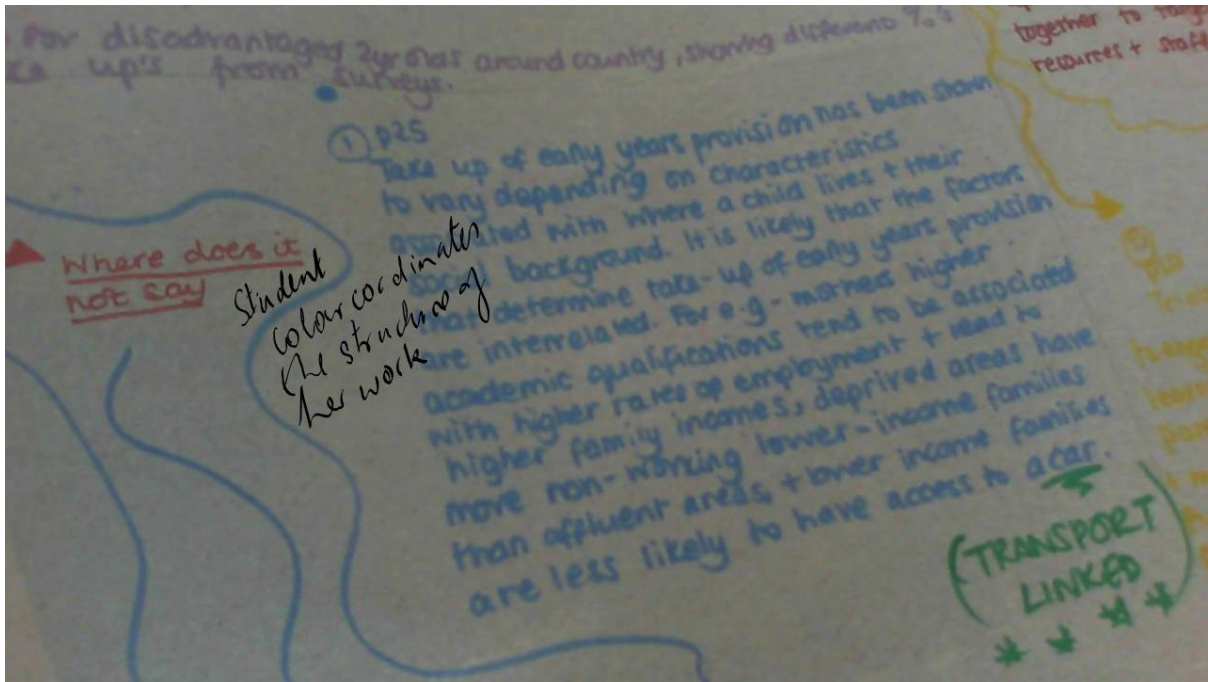 For disadvantaged 2yr olds around country, showing different %'s
up's from surveys.
together to
resources + staff
① p25
Take up of early years provision has been shown
to vary depending on characteristics
associated with where a child lives + their
social background. It is likely that the factors
that determine take-up of early years provision
are interrelated. For e.g - mothers higher
academic qualifications tend to be associated
with higher rates of employment + tend to
higher family incomes, deprived areas have
more non-working lower-income families
than affluent areas, + lower income families
are less likely to have access to a car.
(TRANSPORT
LINKED)
Where does it
not say
Student
colour cordinates
the structure of
her work